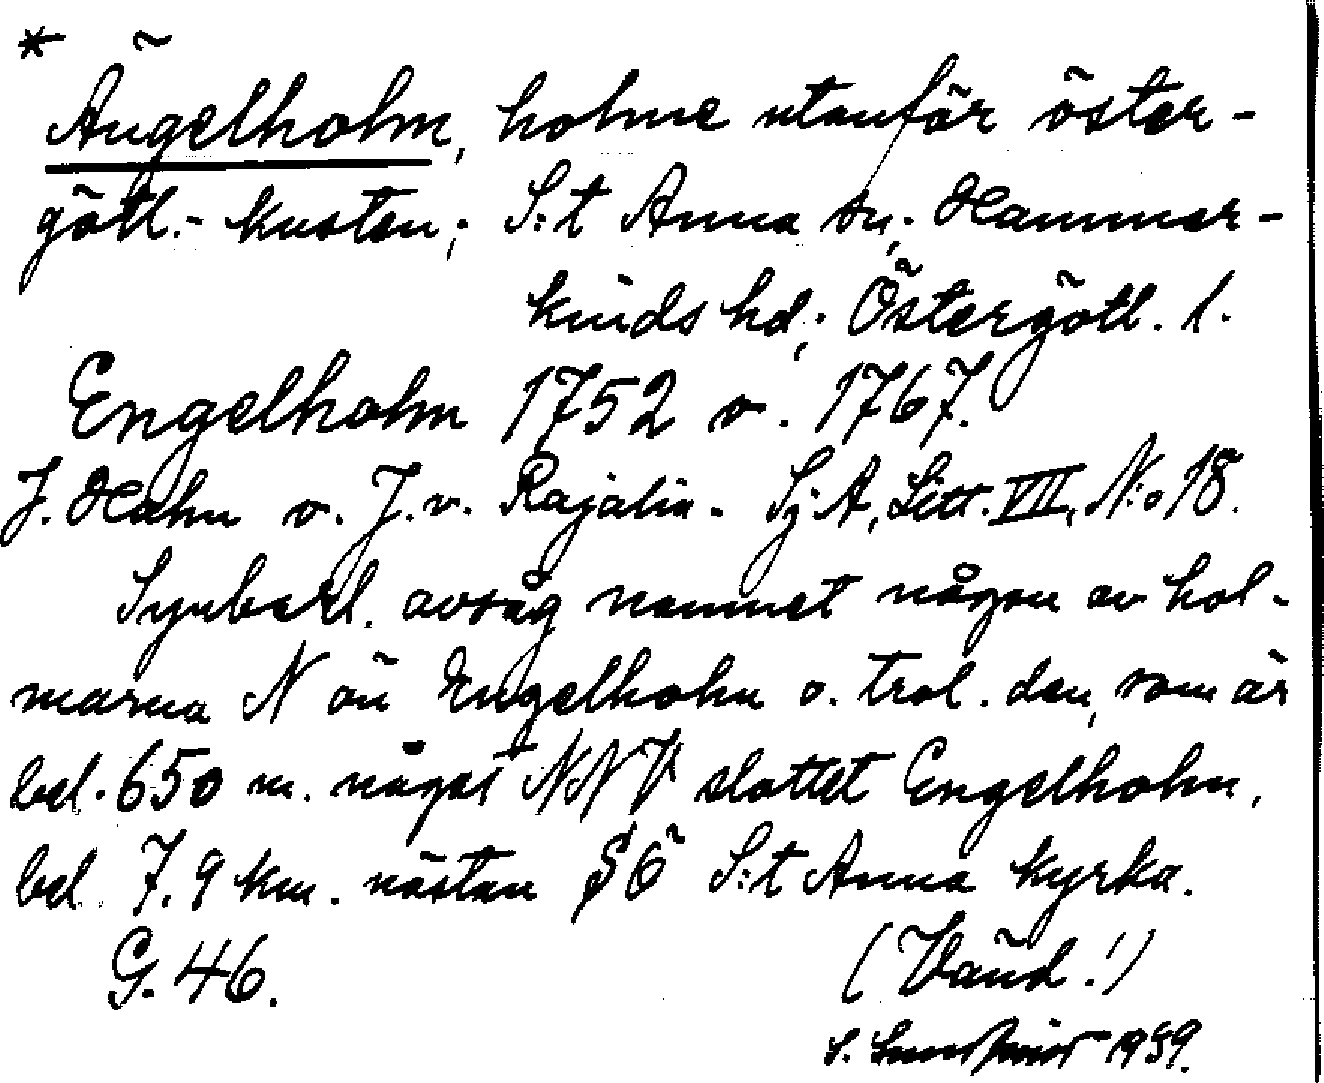 *
Ängelholm, holme utanför öster-
götl.- kusten; S:t Anna sn; Hammar-
kinds hd; Östergötl. l.
Engelholm 1752 o. 1767.
J. Hahn o. J. v. Rajalin. Sj A, Litt. VII, N:o 18.
Synbarl. avsåg namnet någon av hol-
marna N om Engelholm o. trol. den, som är
bel. 650 m. något NNV slottet Engelholm,
bel. 7.9 km. nästan SÖ S:t Anna kyrka.
G. 46.
(Vänd!)
S. 1959.